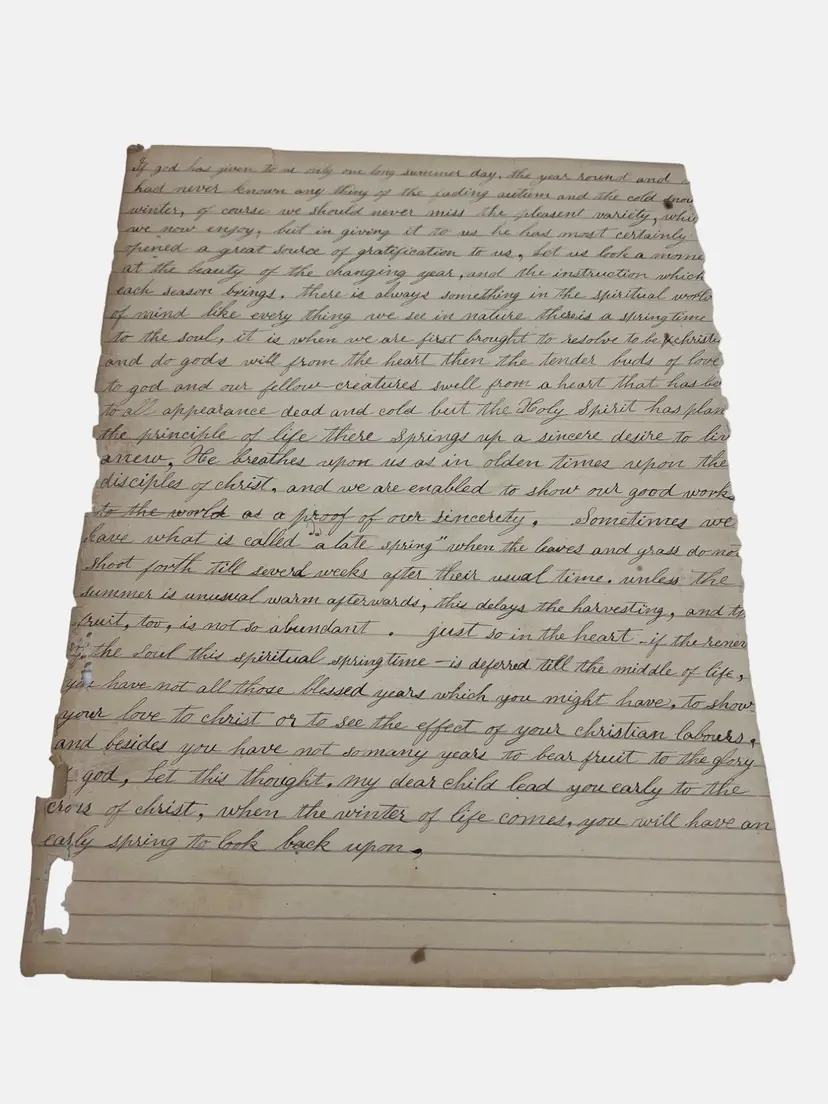 If god has given to us only one long summer day, the year round and
had never known any thing of the fading autum and the cold snow
winter, of course we should never miss the pleasent variety, whi
we now enjoy, but in giving it to us he has most certainly
opened a great source of gratification to us, Let us look a mome
at the beauty of the changing year, and the instruction which
each season brings. there is always something in the spiritual world
of mind like every thing we see in nature there is a springtime
to the soul, it is when we are first brought to resolve to be christi
and do gods will from the heart then the tender buds of love
to god and our fellow-creatures swell from a heart that has be
to all appearance dead and cold but the Holy Spirit has plan
the principle of life there springs up a sincere desire to liv
anew, He breathes upon us as in olden times upon the
disciples of christ, and we are enabled to show our good works
to the world as a proof of our sincerety. Sometimes we
have what is called "a late spring" when the leaves and grass do not
shoot forth till severel weeks after their usual time. unless the
summer is unusual warm afterwards, this delays the harvesting, and th
fruit, too, is not so abundant. just so in the heart - if the renew
the soul this spiritual springtime - is deferred till the middle of life,
you have not all those blessed years which you might have, to show
your love to christ or to see the effect of your christian labours,
and besides you have not so many years to bear fruit to the glory
god, Let this thought, my dear child lead you early to the
cross of christ, when the winter of life comes, you will have an
early spring to look back upon,